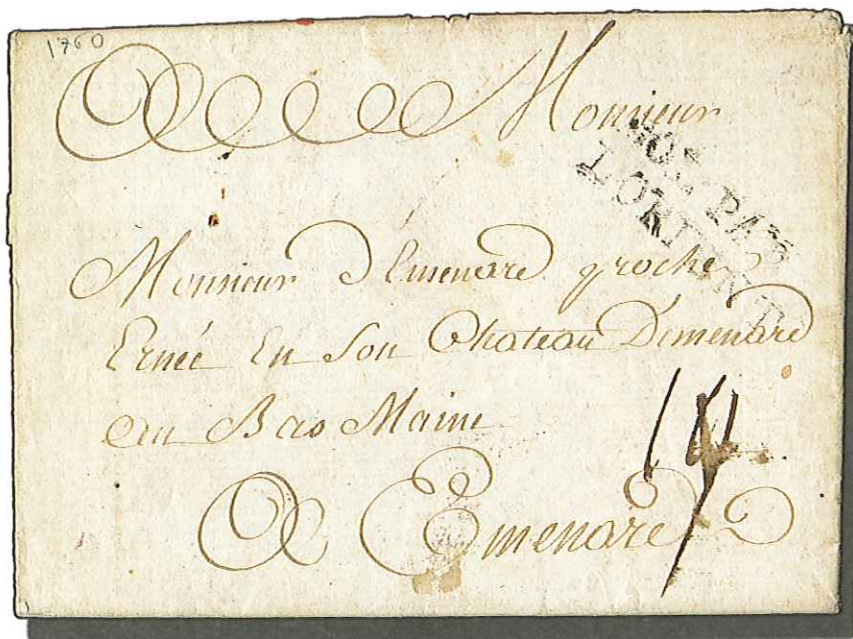 1760
Monsieur
COL. PAR
LORIENT
Monsieur d'Emenard proche
Ernée En Son Chateau D'emenard
au Bas Maine
A Emenard